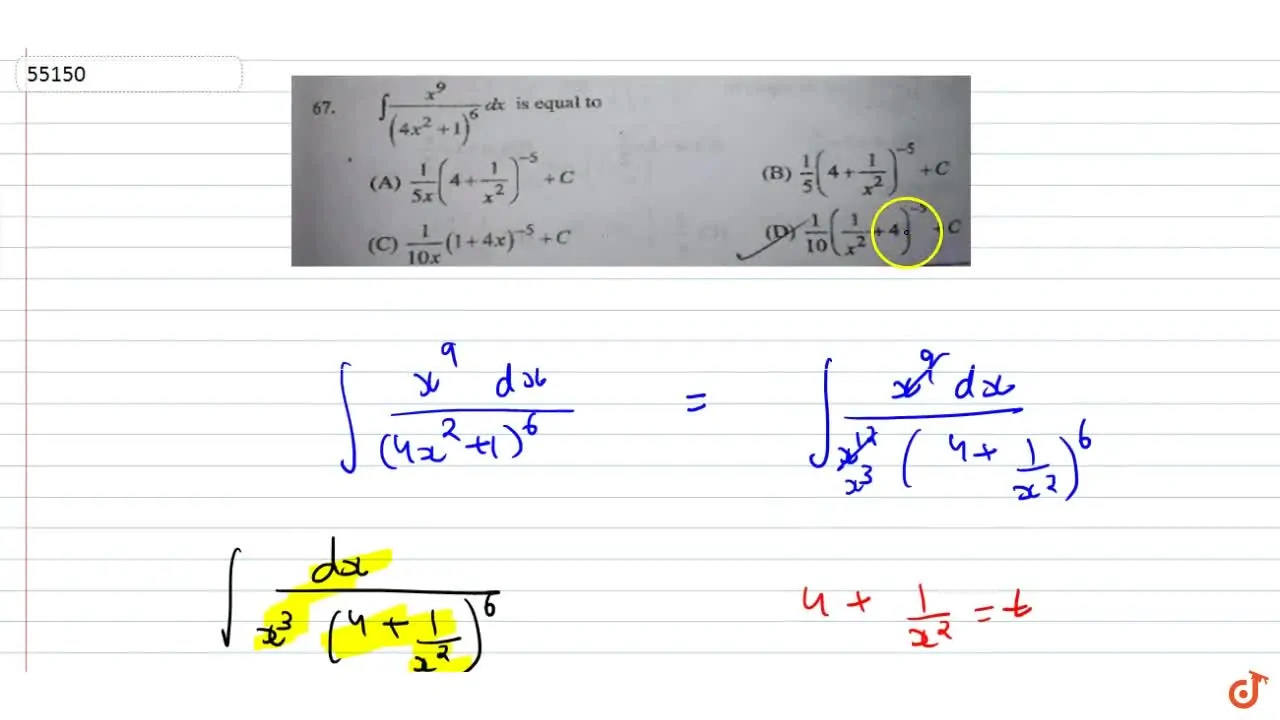 55150
67. ∫ x⁹/(4x² + 1)⁶ dx is equal to
(A) 1/5x (4 + 1/x²)⁻⁵ + C
(B) 1/5 (4 + 1/x²)⁻⁵ + C
(C) 1/10x (1 + 4x)⁻⁵ + C
(D) 1/10 (1/x² + 4)⁻⁵ + C
∫ x⁹ dx/(4x² + 1)⁶ = ∫ x⁹ dx/x¹² x³ (4 + 1/x²)⁶
∫ dx/x³ (4 + 1/x²)⁶
4 + 1/x² = t